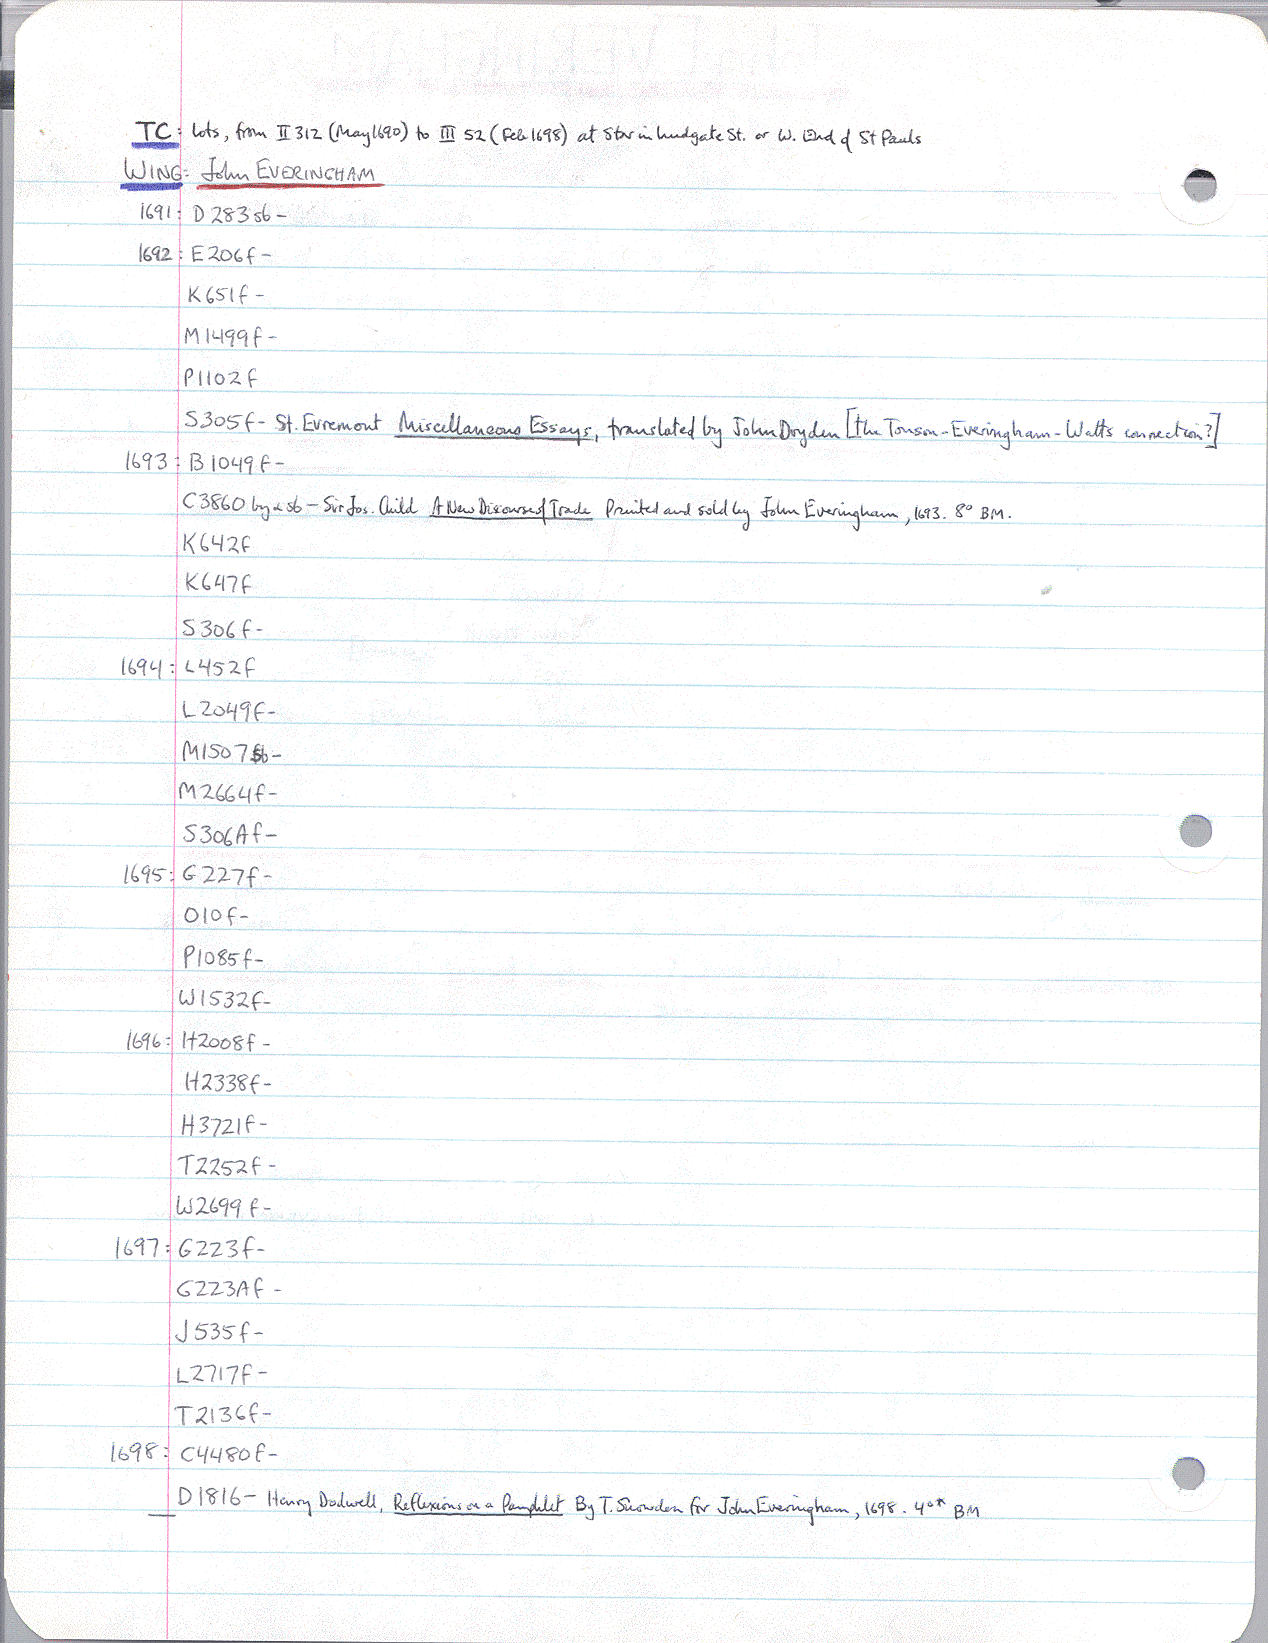 TC: lots, from II 312 (May 1690) to III 52 (Feb 1698) at Star in Ludgate St. or W. End of St Pauls
WING: John EVERINGHAM
1691: D283sb-
1692: E206f-
K651f-
M1499f-
P1102f
S305f- St. Evremont Miscellaneous Essays, translated by John Dryden [the Tonson-Everingham-Watts connection?]
1693: B1049f-
C3860 by & sb- Sir Jos. Child A New Discourse of Trade Printed and sold by John Everingham, 1693. 8° BM.
K642f
K647f
S306f-
1694: L452f
L2049f-
M1507sb-
M2664f-
S306Af-
1695: G227f-
O10f-
P1085f-
W1532f-
1696: H2008f-
H2338f-
H3721f-
T2252f-
W2699f-
1697: G223f-
G223Af-
J535f-
L2717f-
T2136f-
1698: C4480f-
D1816- Henry Dodwell, Reflexions on a Pamphlet By T. Snowden for John Everingham, 1698. 4°* BM